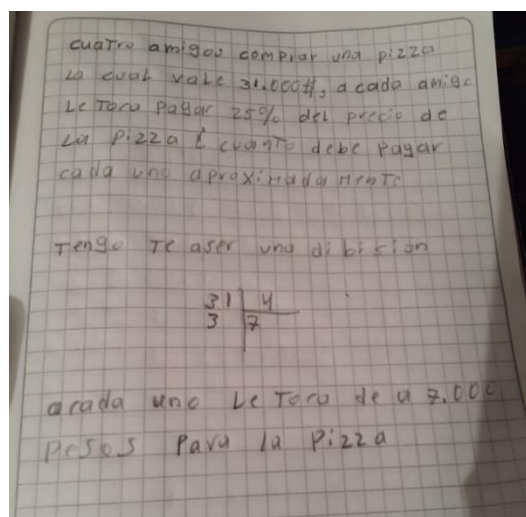 cuatro amigos comprar una pizza
La cual vale 31.000#, a cada amigo
Le Toca Pagar 25% del precio de
La Pizza ¿ cuanto debe Pagar
cada uno aproximadamente
Tengo Te aser una dibision
31 4
3 7
acada uno Le Toca de a 7.000
Pesos Para la Pizza